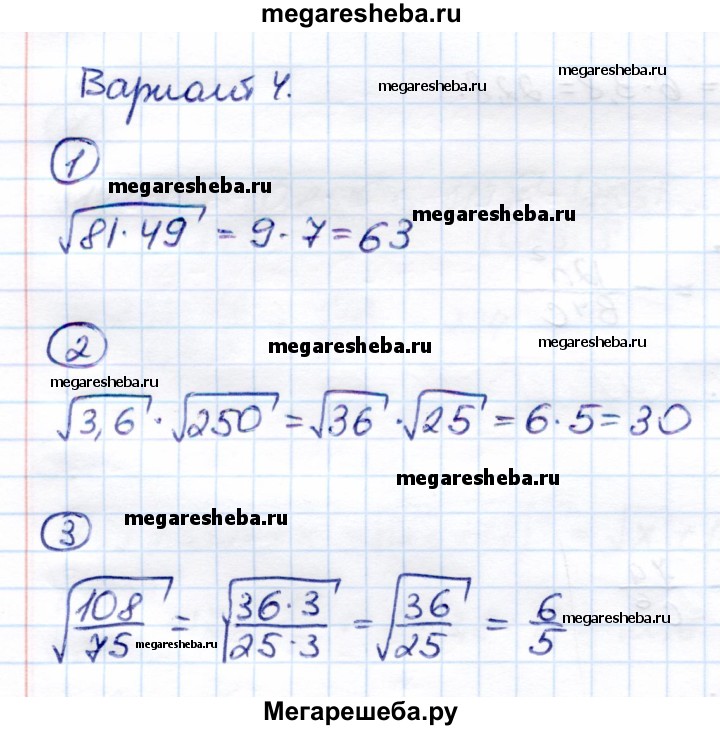 megaresheba.ru
Вариант 4.
megaresheba.ru
megaresheba.ru
1
megaresheba.ru
megaresheba.ru
√81·49 = 9·7=63
2
megaresheba.ru
megaresheba.ru
megaresheba.ru
√3,6·√250=√36·√25=6·5=30
megaresheba.ru
3
megaresheba.ru
√108/75 = √36·3/25·3 = √36/25 = 6/5
megaresheba.ru
megaresheba.ru
Мегарешеба.ру